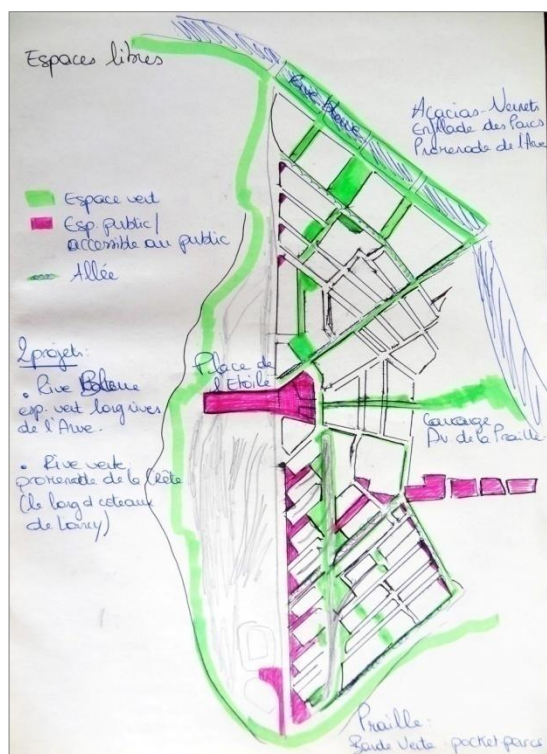 Espaces libres
Rive bleue
Acacias-Vernets
Enfilade des Parcs
Promenade de l'Arve
Espace vert
Esp. public/
accessible au public
Allée
Place de
l'Etoile
2 projets:
• Rive Bleue
esp. vert long rives
de l'Arve.
• Rive verte
promenade de la Crête
(le long d coteaux
de Lancy)
Carouge
Av. de la Praille
Praille:
Bande Verte pocket parcs